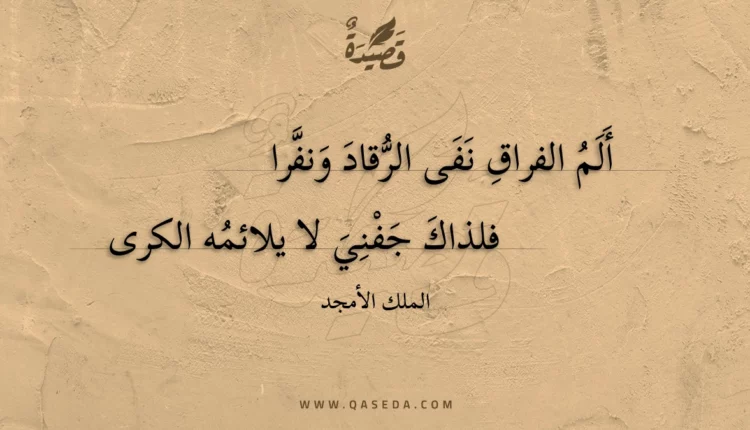 قَصِيْدَةٌ
أَلَمُ الفراقِ نَفَى الرُّقادَ وَنفَّرا
فلذاكَ جَفْنِيَ لا يلائمُه الكرى
الملك الأمجد
WWW.QASEDA.COM